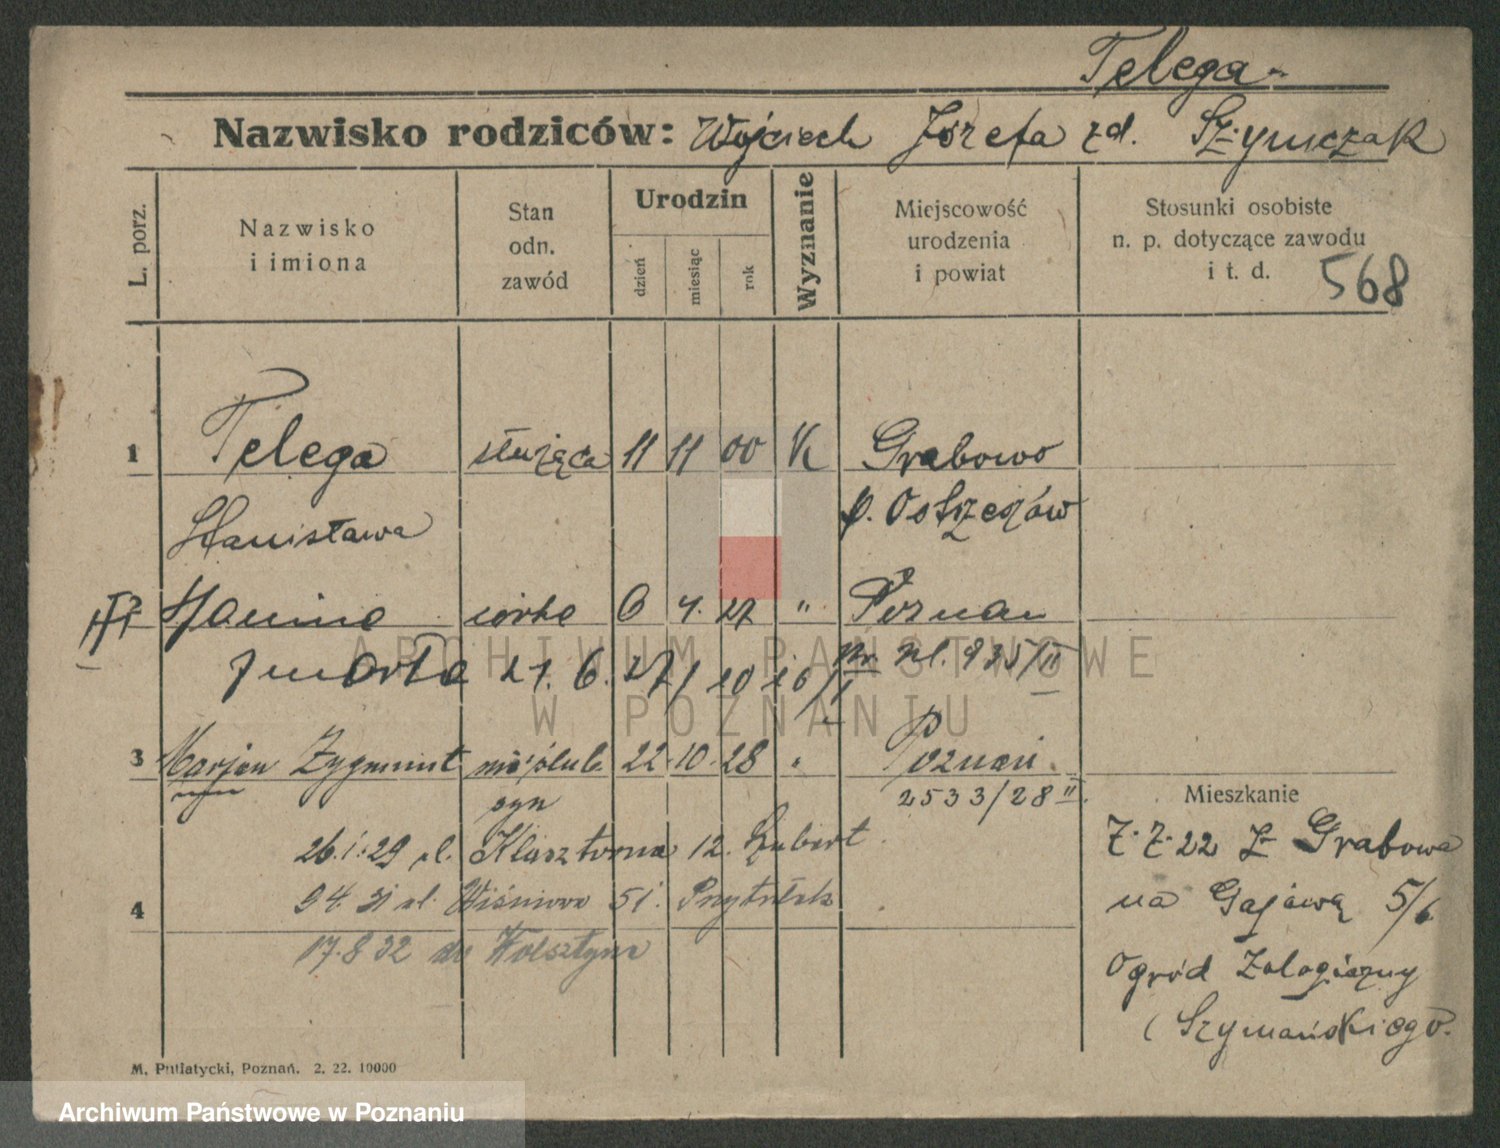 Telega
Nazwisko rodziców: Wojciech Józefa zd. Szymczak
L. porz.
Nazwisko
i imiona
Stan
odn.
zawód
Urodzin
dzień
miesiąc
rok
Wyznanie
Miejscowość
urodzenia
i powiat
Stosunki osobiste
n. p. dotyczące zawodu
i t. d. 568
1 Telega służąca 11 11 00 K Grabowo
Stanisława p. Ostrzeszów
2 Hanina córka 6 4. 27 " Poznań
zmarła 21. 6. 27 / 10 16/I
935/II
3 Marjan Zygmunt nieślub. 22 10. 28 " Poznań.
syn 2533/28 II.
Mieszkanie
26.1.29 ul. Klasztorna 12. Hubert
9 4. 31 ul. Wiśniowa 51. Przytułek
4
17.8 32 do Wolsztyna
7.7.22 Z Grabowa
na Gajową 5/6
Ogród Zologiczny
(Szymańskiego.
M. Putiatycki, Poznań. 2. 22. 10000
ARCHIWUM PAŃSTWOWE
W POZNANIU
Archiwum Państwowe w Poznaniu